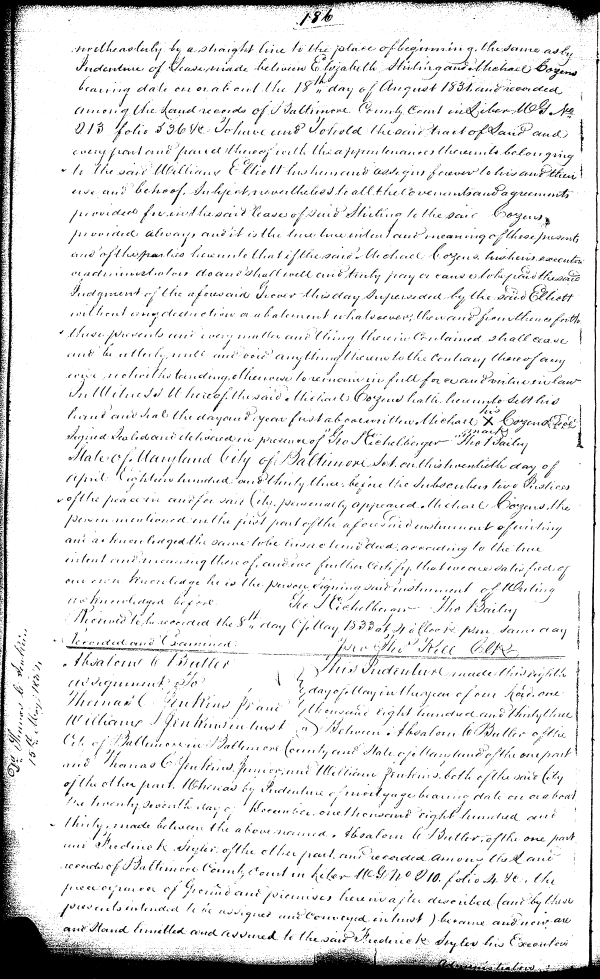 186
northeasterly by a straight line to the place of beginning, the same as by
Indenture of Lease made between Elizabeth Stirling and Michael Cozens
bearing date on or about the 18th day of August 1831 and recorded
among the Land records of Baltimore County Court in Liber W G No
213 folio 536 &c To have and To hold the said tract of Land and
every part and parcel thereof with the appurtenances thereunto belonging
to the said William Elliott his heirs and assigns forever to his and their
use and behoof, Subject nevertheless to all the Covenants and agreements
provided for in the said lease of said Stirling to the said Cozens,
provided always and it is the true intent and meaning of these presents
and of the parties hereunto that if the said Michael Cozens his heirs executors
or administrators do and shall well and truly pay or cause to be paid the said
Judgment of the aforesaid this day Superseded by the said Elliott
without any deduction or abatement whatsoever, then and from thence forth
these presents and every matter and thing therein contained shall cease
and be utterly null and void any thing therein to the contrary thereof any
wise notwithstanding, otherwise to remain in full force and virtue in law
In Witness Whereof the said Michael Cozens hath hereunto set his
hand and seal the day and year first above written Michael his X mark Cozens Seal
Signed Sealed and delivered in presence of Geo Keichelberger Tho Bailey
State of Maryland City of Baltimore Sct. on this twentieth day of
April Eighteen hundred and thirty three, before the Subscribers two Justices
of the peace in and for said City, personally appeared Michael Cozens, the
person mentioned in the first part of the aforesaid instrument of writing
and acknowledged the same to be his act and deed, according to the true
intent and meaning thereof, and we further certify, that we are satisfied of
our own knowledge he is the person signing said instrument of Writing
acknowledged before Tho Bailey
Received to be recorded the 8th day of May 1833 at 4 oClock p.m. same day
Recorded and Examined per Tho Kell Clk
Absalom C Butler
assignment To
Thomas C Jenkins Jr and
William Jenkins in trust
This Indenture made this eighth
day of May in the year of our Lord, one
thousand eight hundred and thirty three
Between Absalom C Butler of the
City of Baltimore in Baltimore County and State of Maryland of the one part
and Thomas C Jenkins, Junior, and William Jenkins, both of the said City
of the other part. Whereas by Indenture of mortgage bearing date on or about
the twenty seventh day of November, one thousand eight hundred and
thirty, made between the above named Absalom C Butler, of the one part
and Frederick, of the other part, and recorded among the Land
records of Baltimore County Court in Liber W G No 210 folio 4 &c. the
piece or parcel of Ground and premises herein after described (and by these
presents intended to be assigned and conveyed in trust) became and now are
and Stand limitted and assured to the said Frederick his Executors
Administrators
Dd. Thomas C Jenkins
15th May 1834